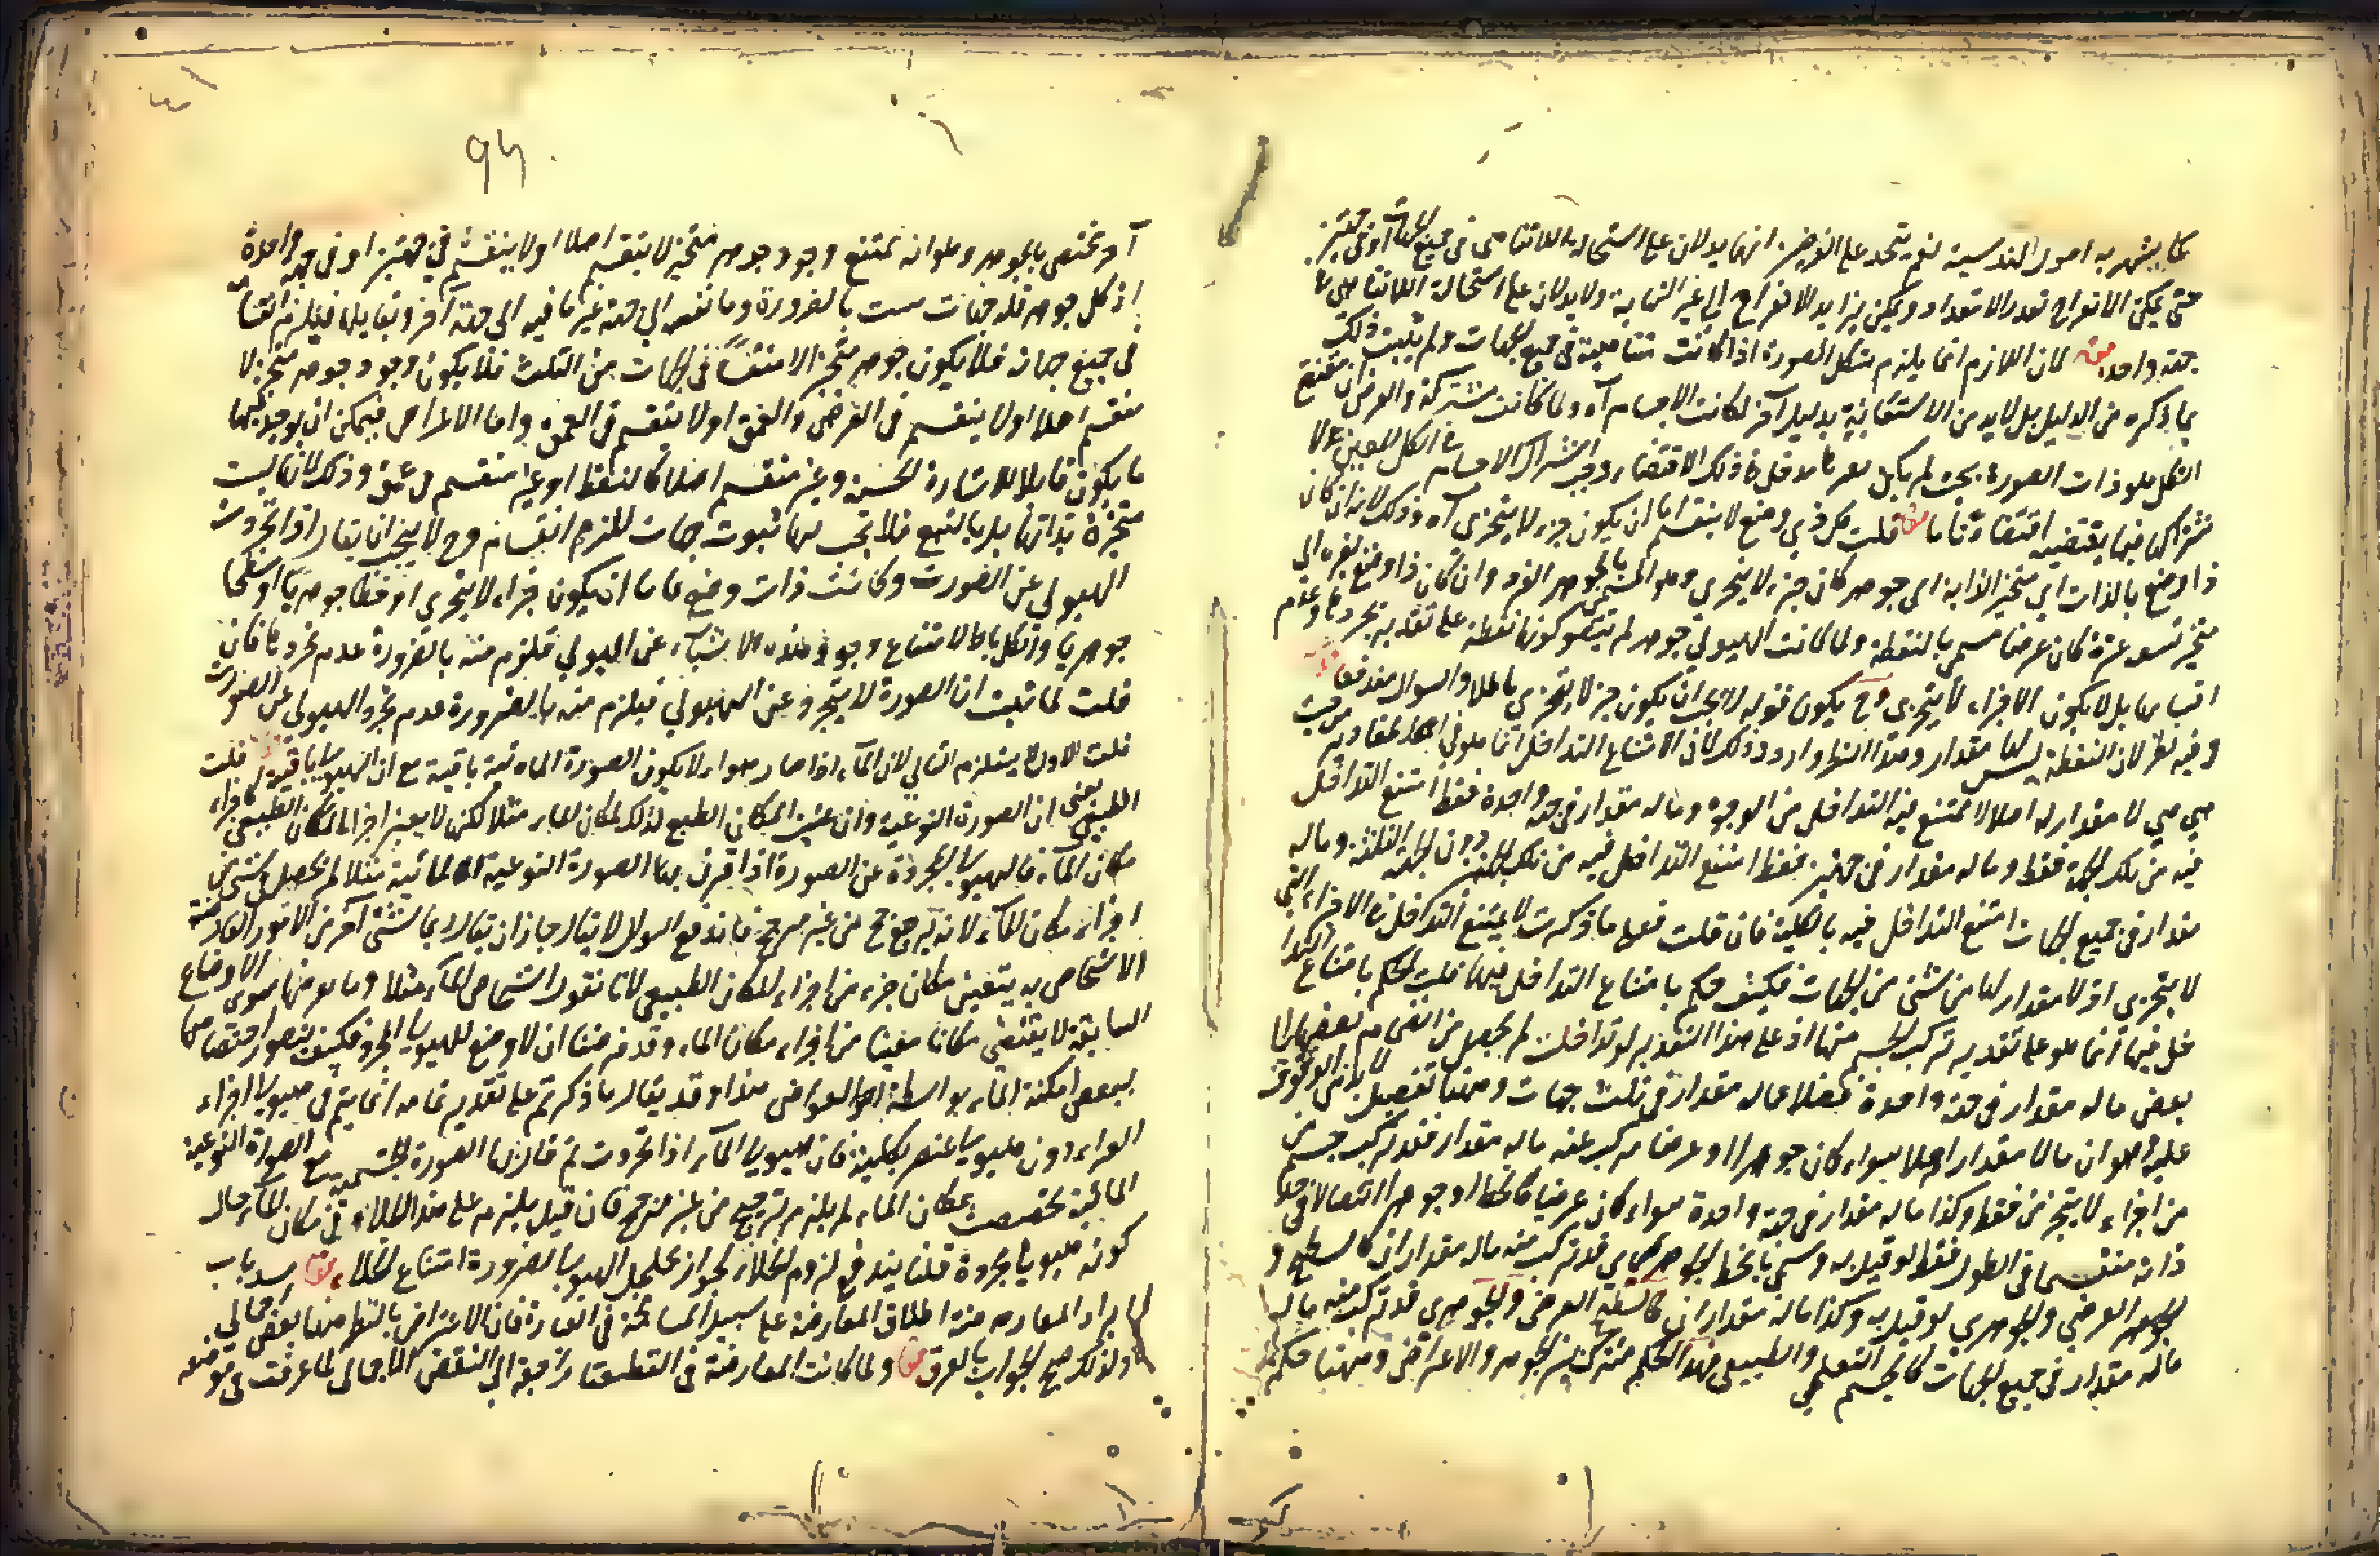 كما يشهد به اصول الهندسية نعم يتجه على الفريقين انهما يدلان على استحالة اللاتناهي في جميع الجهات او في جهتين
حتى يمكن الانفراج بقدر الامتداد ويمكن تزايد الانفراج الى غير النهاية ولا يدلان على استحالة اللاتناهي في
جهة واحدة قوله لان اللازم انما يلزم تشكل الصورة اذا كانت متناهية في جميع الجهات ولم يثبت ذلك
بما ذكره من الدليل بل لا بد من الاستعانة بدليل آخر لكانت الاجسام آه ولما كانت مشتركة
الشكل هو ذات الصورة بحيث لم يكن لغيرها مدخل في ذلك الاقتضاء وجب اشتراك الاجسام في الشكل المعين
فيما يقتضيه اقتضاء تاما قوله قلت كل ذي وضع لا ينقسم اما ان يكون جزء لا يتجزى آه وذلك لانه ان كان
ذا وضع بالذات اي متحيزا لذاته اي جوهر كان جزء لا يتجزى وهو المسمى بالجوهر الفرد وان كان ذا وضع لغيره اي
متحيز بتبعية غيره كان عرضا مسمى بالنقطة ولما كانت الهيولى جوهر لم يتصور كونها نقطة على تقدير تجردها وعدم
بل لا يكون الاجزاء لا يتجزى وح يكون قوله لا يجب ان يكون جزء لا يتجزى باطلا والسؤال مندفعا
وفيه نظر لان النقطة ليس لها مقدار وهذا وارد وذلك لان الامتناع التداخل انما هو في المقادير من حيث
هي هي لا مقدار له اصلا لا يمتنع فيه التداخل من الوجوه وما له مقدار في جهة واحدة فقط امتنع التداخل
فيه من تلك الجهة فقط وما له مقدار في جهتين فقط امتنع التداخل فيه من تلك الجهتين دون الجهة الثلثة وما له
مقدار في جميع الجهات امتنع التداخل فيه بالكلية فان قلت فعلى ما ذكرت لا يمتنع التداخل في الاجزاء التي
لا يتجزى اذ لا مقدار لها من شئ من الجهات فكيف حكم بامتناع التداخل فيها قلت الحكم بامتناع التداخل
فيها انما هو على تقدير تركب الجسم منها اذ على هذا التقدير لو تداخلت لم يحصل من انضمام بعضها الى
بعض ما له مقدار في جهة واحدة فضلا عما له مقدار في ثلث جهات وههنا تفصيل لا بد من الوقوف
عليه وهو ان ما لا مقدار اصلا سواء كان جوهرا او عرضا مركب عنه ما له مقدار فقد تركب جسم
من اجزاء لا يتجزى فقط وكذا ما له مقدار في جهة واحدة سواء كان عرضيا كالخط او جوهرا اتصالا في
ذاته منقسما في الطول فقط لو قيل به وسمي بالخط الجوهري قد تركب منه ما له مقداران كالسطح
العرضي والجوهري لو قيل به وكذا ما له مقداران كالسطح العرضي والجوهري قد تركب منه ما له
ما له مقدار في جميع الجهات كالجسم التعليمي والطبيعي هذا الحكم مشترك بين الجوهر والاعراض وههنا حكم
94
آخر مختص بالجوهر وهو انه يمتنع وجود جوهر متحيز لا ينقسم اصلا او لا ينقسم في جهتين او في جهة واحدة
اذ كل جوهر فله جهات ست بالضرورة وما فيه الى جهة غير ما فيه الى جهة آخر فيلزم انقسامه
في جميع جهاته فلا يكون جوهر متحيز الا منقسما في الجهات من الثلث فلا يكون وجود جوهر متحيز لا
منقسم اصلا او لا ينقسم في العرض والعمق او لا ينقسم في العمق واما الاعراض فيمكن ان يوجد فيها
ما يكون قابلا للاشارة الحسية وغير منقسم اصلا كالنقط او غير منقسم في عمق وذلك لانها ليست
متحيزة بذاتها بل بالتبع فلا يجب لها ثبوت جهات لتلزم انقسامه وح لا يتجه ان يقال اذا تجردت
الهيولى عن الصورة وكانت ذات وضع فاما ان يكون جزاء لا يتجزى او خطا جوهريا او سطحا
جوهريا والكل باطل لامتناع وجود هذه الاشياء عن الهيولى فلزم منه بالضرورة عدم تجردها فان
قلت لما ثبت ان الصورة لا يتجرد عن الهيولى فيلزم منه بالضرورة عدم تجرد الهيولى عن الصورة
قلت الاول لا يستلزم الثاني لان الماء اذا صار هواء لا يكون الصورة المائية باقية مع ان الهيولى باقية قوله قلت
يعني ان الصورة النوعية وان عينت المكان الطبيعي لذلك كمكان الماء مثلا لكنها لا يعين اجزاء المكان الطبيعي كاجزاء
مكان الماء فالهيولى المجردة عن الصورة اذا اقترن بها الصورة النوعية المائية مثلا لم تحصل في شئ من
اجزاء مكان الماء لانه ترجيح من غير مرجح فاندفع السؤال لا يقال جاز ان يقال انما شئ آخر من الامور
الاشخاص به يتعين مكان جزء من اجزاء للمكان الطبيعي لانا نقول اشخاص الماء مثلا وما يعرضها سوى الاوضاع
السابقة لا يقتضي مكانا معينا من اجزاء مكان الماء وقد فرضنا ان لا وضع للهيولى المجردة فكيف يتصور اختصاصها
ببعض امكنة الماء بواسطة العوارض هذا وقد يقال ما ذكرتم على تقدير تمامه انما يتم في هيولى اجزاء
الهواء دون هيولى عنصر بكليته فان هيولى الماء اذا تجردت ثم قارنها الصورة الجسمية مع الصورة النوعية
المائية تخصصت بمكان الماء لم يلزم ترجيح من غير مرجح فان قيل يلزم على هذا الخلاء في مكان الماء حال
كونه هيولى مجردة قلنا يندفع لزوم الخلاء لجواز تخلخل الهيولى لضرورة امتناع الخلاء قوله سد باب
ايراد المعارضه منه اطلاق المعارضة على سبيل المسامحة في العبارة فان الاعتراض بالنظر منها نقض اجمالي
ولذلك صح الجواب بالفرق قوله ولما كانت المعارضة في القطعيات راجعة الى النقض الاجمالي لما عرفت في موضعه